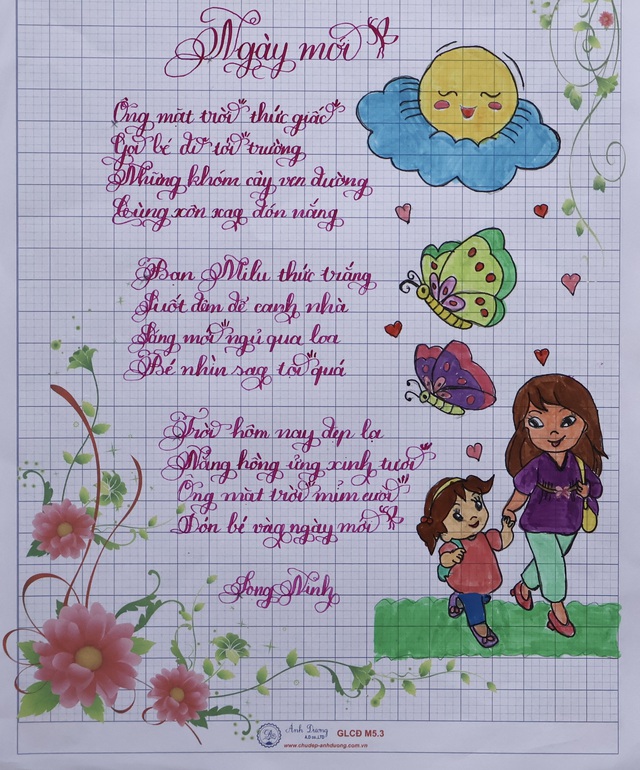 Ngày mới
Ông mặt trời thức giấc
Gọi bé để tới trường
Những khóm cây ven đường
Cùng xôn xao đón nắng
Bạn Milu thức trắng
Suốt đêm để canh nhà
Sáng mới ngủ qua loa
Bé nhìn sao tội quá
Trời hôm nay đẹp lạ
Nắng hồng ửng xinh tươi
Ông mặt trời mỉm cười
Đón bé vào ngày mới
Song Ninh
Ánh Dương
A.D co.,LTD
GLCĐ M5.3
www.chudep-anhduong.com.vn